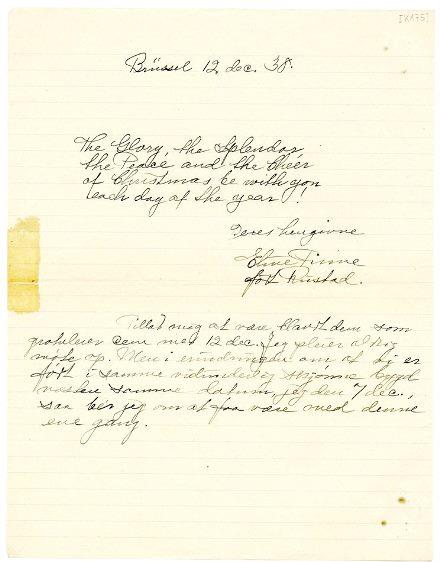 [XX75]
Brüssel 12 dec. 38.
The Glory, the Splendor
the Peace and the Cheer
of Christmas be with you
each day of the year!
Deres hengivne
Finne
født Rustad.
Tillad mig at være blandt dem som
gratulerer eene med 12 dec. Jeg pleier ikke
møte op. Men i erindringen om at vi er
født i samme vidunderlig skjønne bygd
næsten samme datum, jeg den 7 dec.,
saa ber jeg om at faa være med denne
ene gang.